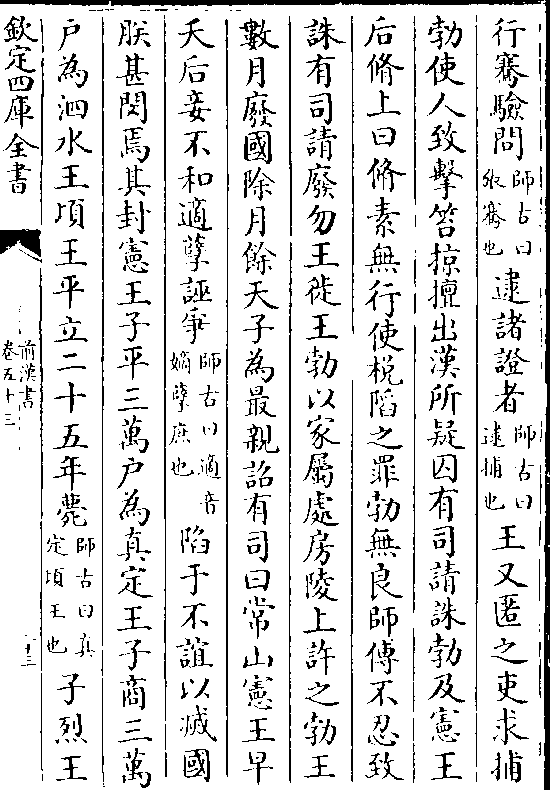 行騫驗問師古曰張騫也逮諸證者師古曰逮捕也王又匿之吏求捕
勃使人致擊笞掠擅出漢所疑囚有司請誅勃及憲王
后脩上曰脩素無行使梲陷之罪勃無良師傅不忍致
誅有司請廢勿王徙王勃以家屬處房陵上許之勃王
數月廢國除月餘天子為最親詔有司曰常山憲王早
夭后妾不和適孽誣爭師古曰適音嫡孽庶也陷于不誼以滅國
朕甚閔焉其封憲王子平三萬户為真定王子商三萬
户為泗水王頃王平立二十五年薨師古曰真定頃王也子烈王
欽定四庫全書
前漢書
卷五十三
十三